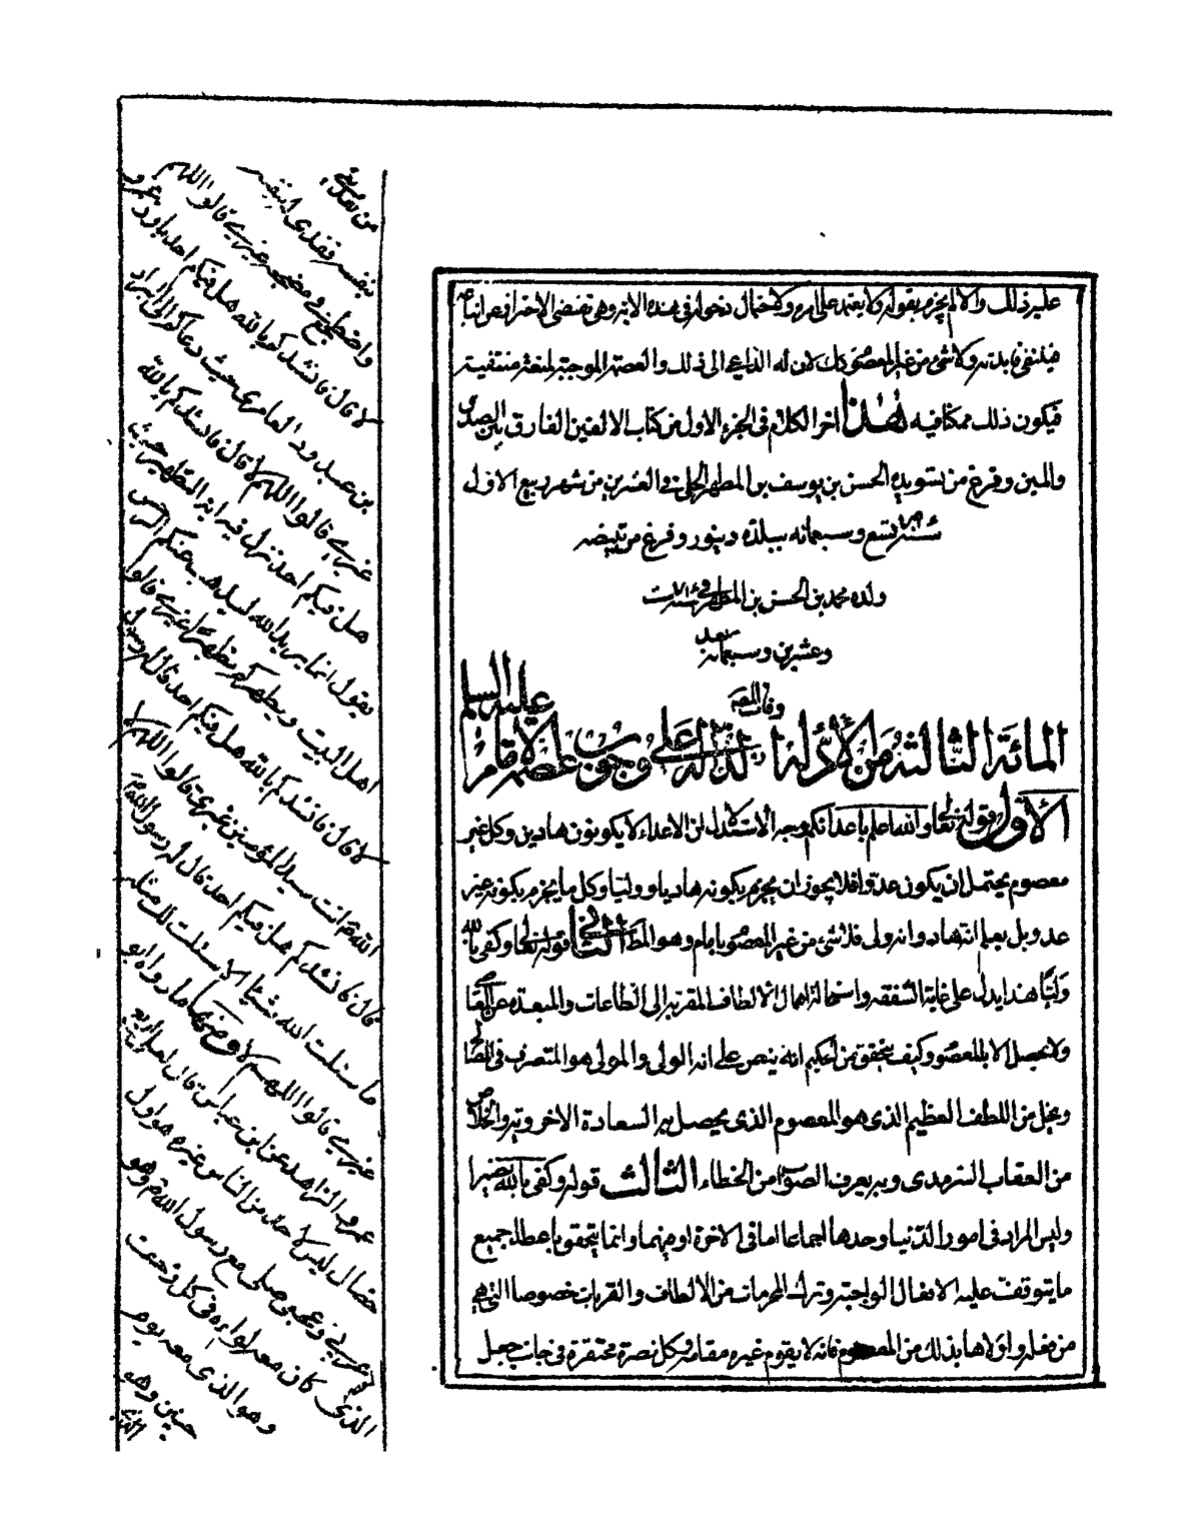 عليه ذلك والا لم يجزم بقوله ولا يعتمد على امره ولاحتمال دخوله فى هذه الآية وهى تقتضى الاحتراز عن اتباعه
فينتفى فايدته ولا شئ من غير المعصوم كذلك لان له الداعى الى ذلك والعصمة الموجبة لمنعه منتفية
فيكون ذلك ممكنا فيه هذا اخر الكلام فى الجزء الاول من كتاب الالفين الفارق بين الصدق
والمين وفرغ من تسويده الحسن بن يوسف بن المطهر الحلى فى العشرين من شهر ربيع الاول
سنة تسع وسبعمائه ببلدة دينور وفرغ من تبيضه
ولده محمد بن الحسن بن المطهر فى سنة
وعشرين وسبعمائة بعد
وفات المصنف
المائة الثالثة من الأدلة الدالة على وجوب عصمة الامام عليه السلم
الأول قوله تعالى والله اعلم باعدائكم وجه الاستدلال ان الاعداء لا يكونون هادين وكل غير
معصوم يحتمل ان يكون عدوا فلا يجوز ان يجزم بكونه هاديا ووليا وكل ما يجزم بكونه غير
عدو بل يعلم انه هاد وانه ولى فلا شئ من غير المعصوم بامام وهو المط الثانى قوله تعالى وكفى بالله
وليا هذا يدل على غاية الشفقه واستحالة اهمال الالطاف المقربة الى الطاعات والمبعدة عن
ولا يحصل الا بالمعصوم وكيف يتحقق من الحكيم انه ينص على انه الولى والمولى هو المتصرف فى المصالح
ويخل من اللطف العظيم الذى هو المعصوم الذى يحصل به السعادة الاخروية والخلاص
من العقاب السرمدى وبه يعرف الصواب من الخطاء الثالث قوله وكفى بالله نصيرا
وليس المراد فى امور الدنيا وحدها اجماعا اما فى الاخرة او فيهما وانما يتحقق باعطاء جميع
ما يتوقف عليه الافعال الواجبة وترك المحرمات من الالطاف والقربات خصوصا التى هى
من فعله واولاها بذلك من المعصوم فانه لا يقوم غيره مقامه وكل نصرة محتقرة فى جانب جعل
بنفسه ففدى
واضطجع فى مضجعه غيرى قالوا اللهم
لا قال فانشدكم بالله هل فيكم احد بارز عمرو
بن عبد ود العامرى حيث دعاكم الى البراز
غيرى قالوا اللهم لا قال فانشدكم بالله
هل فيكم احد نزل فيه اية التطهير حيث
يقول انما يريد الله ليذهب عنكم الرجس
اهل البيت ويطهركم تطهيرا غيرى قالوا
لا قال فانشدكم بالله هل فيكم احد قال له رسول
الله انت سيد المؤمنين غيرى قالوا اللهم لا
قال فانشدكم هل فيكم احد قال له رسول الله
ما سئلت الله شيئا الا سئلت لك مثله
غيرى قالوا اللهم لا ومنها ما رواه ابو
عمرو الزاهد عن ابن عباس قال لعلى اربع
خصال ليس لاحد من الناس غيره هو اول
عربى وعجمى صلى مع رسول الله وهو
الذى كان معه لواءه فى كل زحف
وهو الذى صبر معه يوم
حنين وهو
الذى